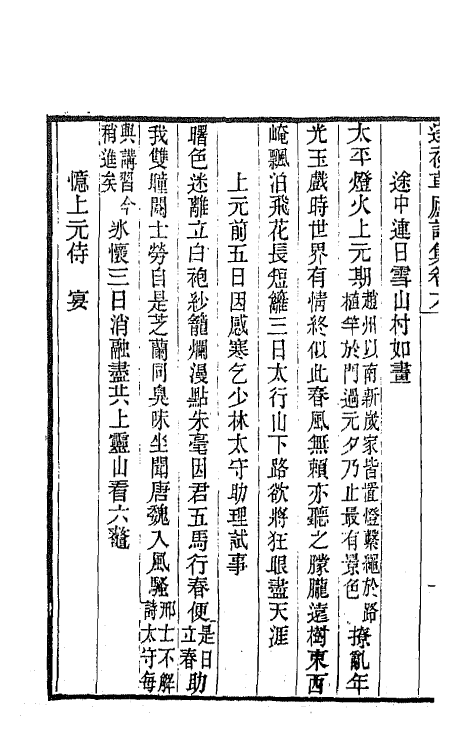 途中連日雪山村如畫
太平燈火上元期趙州以南新歲家皆置燈繫繩於路植竿於門過元夕乃止最有景色撩亂年
光玉戲時世界有情終似此春風無賴亦聽之朦朧遠樹東西
崦飄泊飛花長短籬三日太行山下路欲將狂眼盡天涯
上元前五日因感寒乞少林太守助理試事
曙色迷離立白袍紗籠爛漫點朱毫因君五馬行春便是日立春助
我雙瞳閱士勞自是芝蘭同臭味坐聞唐魏入風騷邢士不解詩太守每
與講習今稍進矣冰懷三日消融盡共上靈山看六鼇
憶上元侍宴